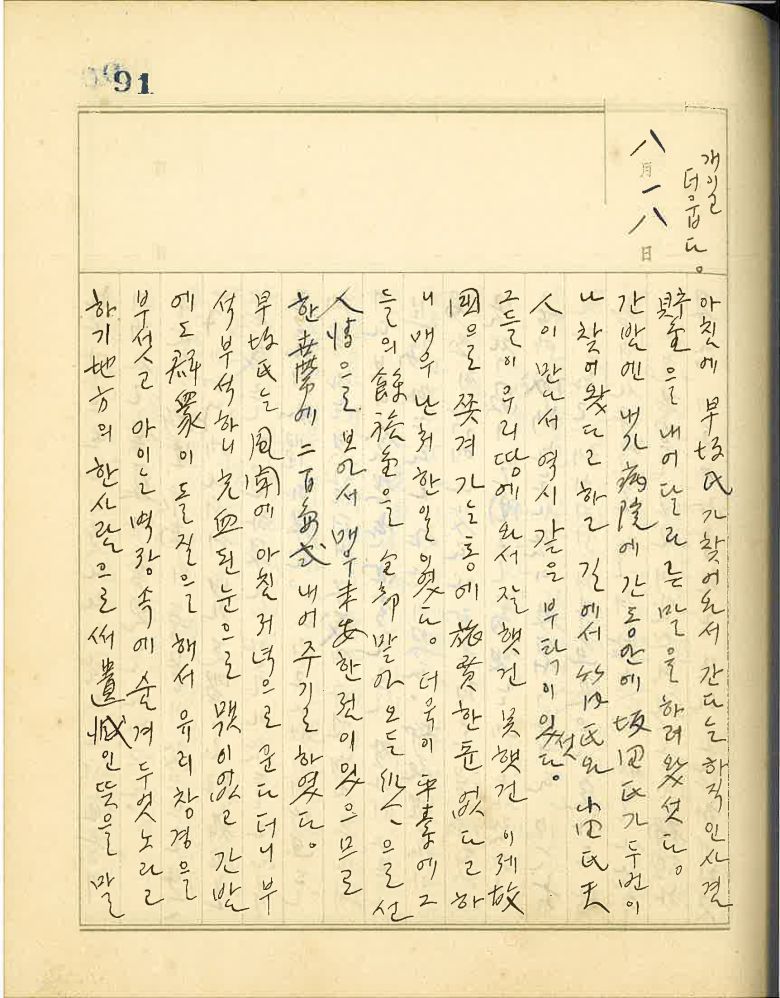 91
八月一八日
개이고
더웁다。
아침에 早坂氏가 찾어와서 간다는 하직인사 겸
貯金을 내어달라는 말을 하려 왔섯다。
간밤엔 내가 病院에 간동안에 坂田氏가 두번이
나 찾어왔다고 하고 길에서 竹内氏와 小田氏夫
人이 만나서 역시 같은 부탁이 있섯다。
그들이 우리땅에 와서 잘햇건 못햇건 이제 故
國으로 쫓겨 가는 통에 旅費 한푼 없다고 하
니 매우 난처한 일이였다。 더욱이 平素에 그
들의 餘裕金을 全部 맡아 오든 으로선
人情으로 보아서 매우 未安한 점이 있으므로
한 世帶에 二百 式 내어 주기로 하였다。
早坂氏는 風聞에 아침 저녁으로 운다더니 부
석부석하니 充血된 눈으로 맥이없고 간밤
에도 群衆이 돌질을 해서 유리창경을
부섯고 아이는 벽장 속에 숨겨 두엇노라고
하기 地方의 한사람으로써 遺憾인 뜻을 말